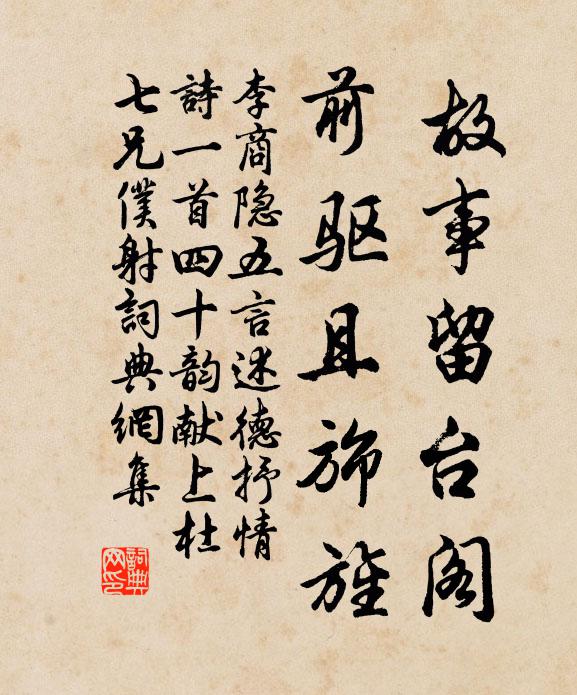 故事留台阁
前驱且旆旌
李商隐五言述德抒情
詩一首四十韵献上杜
七兄僕射詞典網集
詞典网印